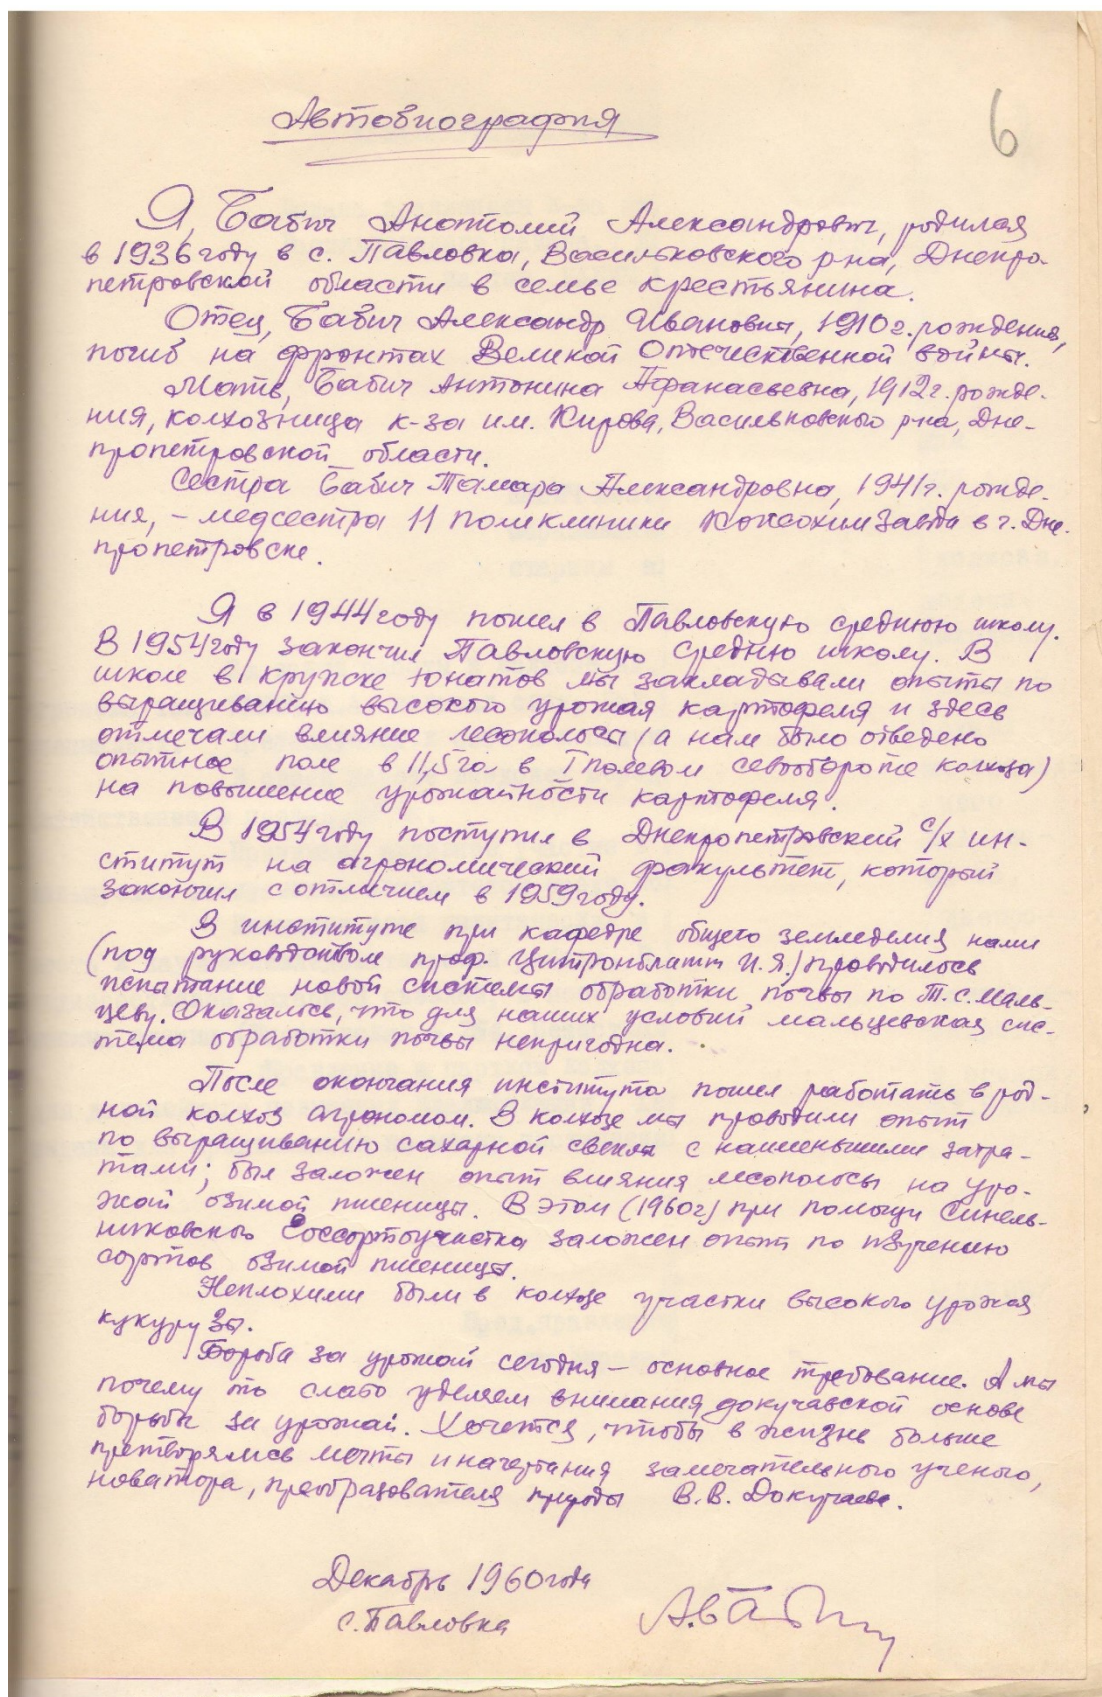 Автобиография
6
Я, Бабич Анатолий Александрович, родился
в 1936 году в с. Павловка, Васильковского р-на, Днепро-
петровской области в семье крестьянина.
Отец, Бабич Александр Иванович, 1910 г. рождения,
погиб на фронтах Великой Отечественной войны.
Мать, Бабич Антонина Афанасьевна, 1912 г. рожде-
ния, колхозница к-за им. Кирова, Васильковского р-на, Дне-
пропетровской области.
Сестра Бабич Тамара Александровна, 1941 г. рожде-
ния, – медсестра 11 поликлиники Коксохимзавода в г. Дне-
пропетровске.
Я в 1944 году пошел в Павловскую среднюю школу.
В 1954 году закончил Павловскую среднюю школу. В
школе в кружке юнатов мы закладывали опыты по
выращиванию высокого урожая картофеля и здесь
отмечали влияние лесополосы (а нам было отведено
опытное поле в 11,5 га в I полевом севообороте колхоза)
на повышение урожайности картофеля.
В 1954 году поступил в Днепропетровский с/х ин-
ститут на агрономический факультет, который
закончил с отличием в 1959 году.
В институте при кафедре общего земледелия нами
(под руководством проф. Цитронблатт И.Я.) проводилось
испытание новой системы обработки почвы по Т.С. Маль-
цеву. Оказалось, что для наших условий мальцевская сис-
тема обработки почвы непригодна.
После окончания института пошел работать в род-
ной колхоз агрономом. В колхозе мы проводили опыт
по выращиванию сахарной свеклы с наименьшими затра-
тами; был заложен опыт влияния лесополосы на уро-
жай озимой пшеницы. В этом (1960 г) при помощи Синель-
никовского Госсортоучастка заложен опыт по изучению
сортов озимой пшеницы.
Неплохими были в колхозе участки высокого урожая
кукурузы.
Борьба за урожай сегодня – основное требование. А мы
почему то слабо уделяем внимания докучаевской основе
борьбы за урожай. Хочется, чтобы в жизнь больше
претворялись мечты и начертания замечательного ученого,
новатора, преобразователя природы В.В. Докучаева.
Декабрь 1960 года
с. Павловка
А. Бабич